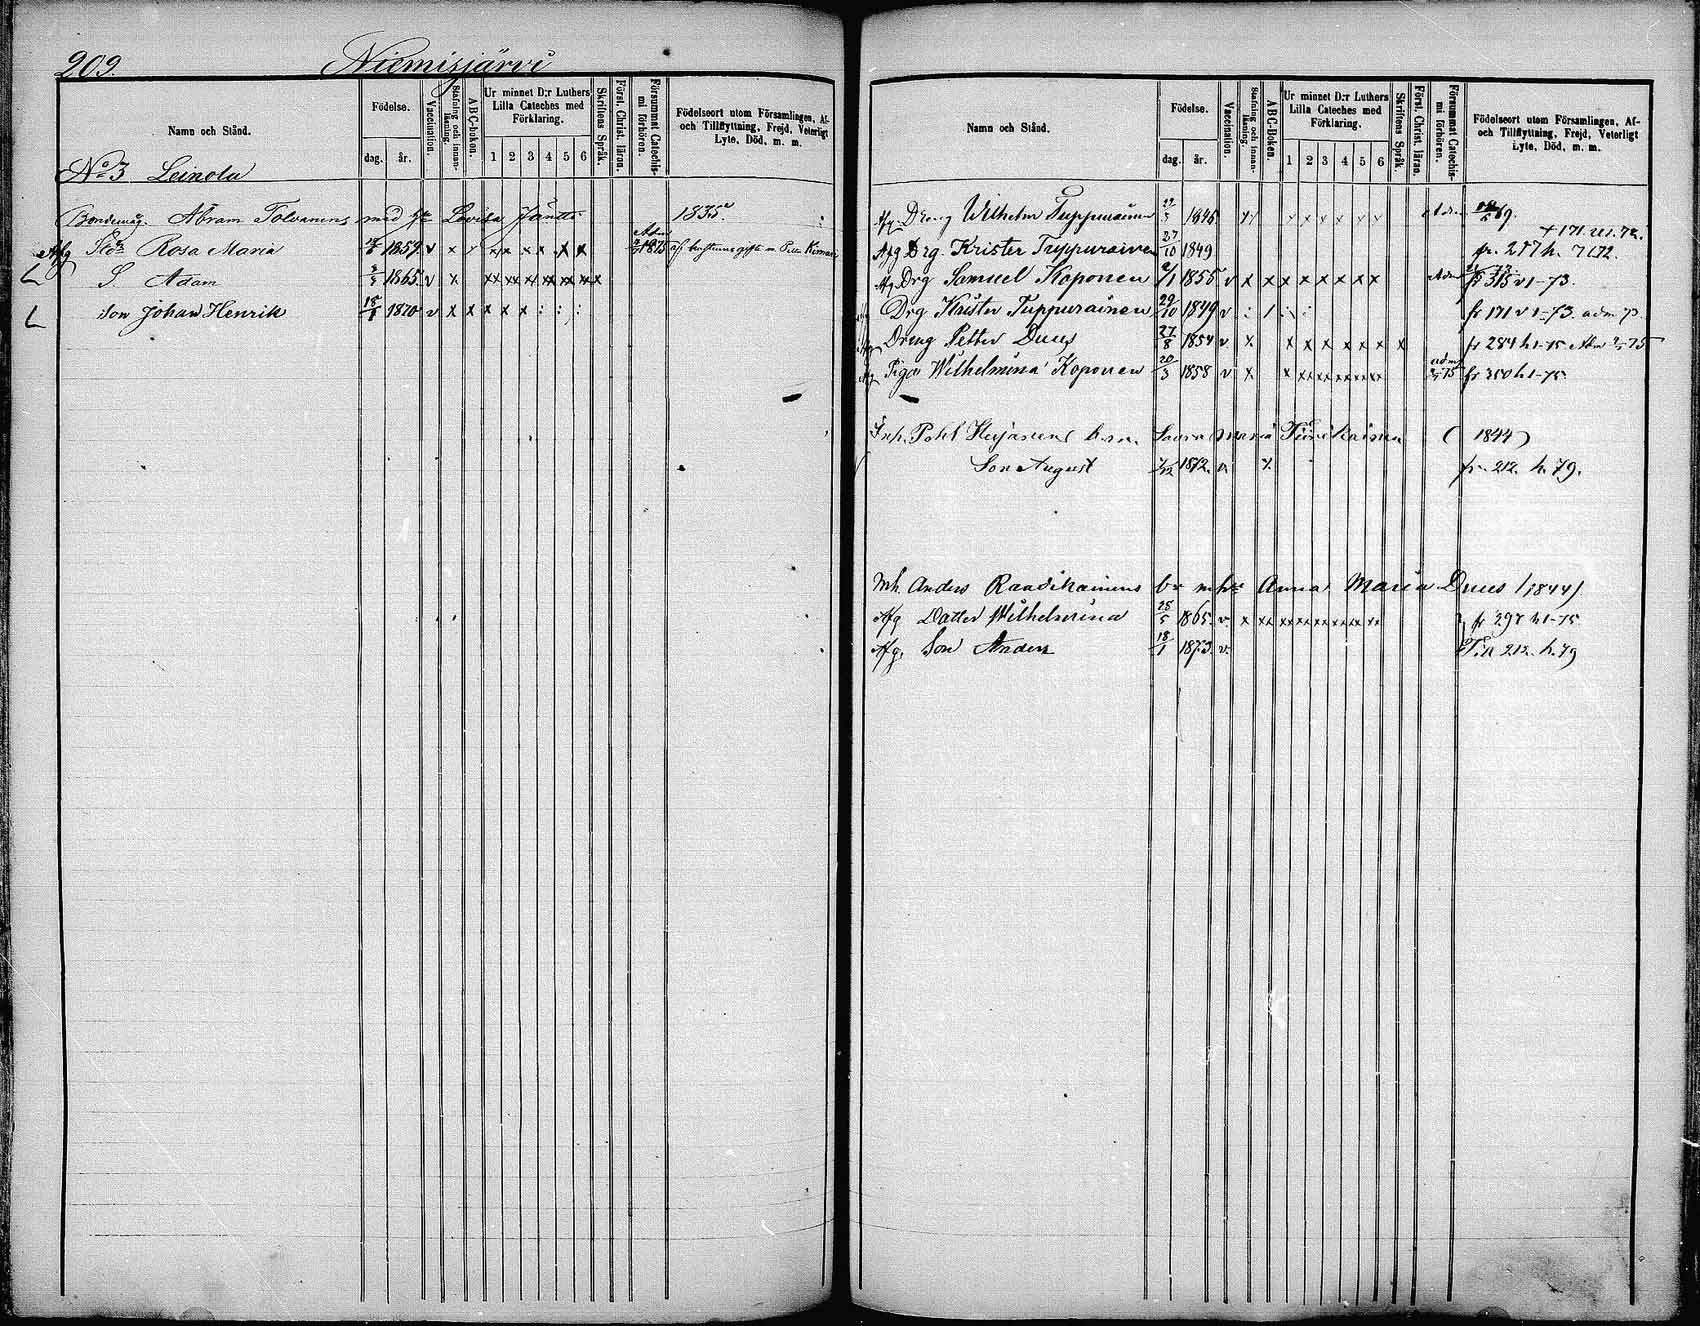 209. Niemisjärvi
Namn och Stånd.
Födelse.
dag. år.
Vaccination.
Stafning och innan-läsning.
ABC-boken.
Ur minnet D:r Luthers
Lilla Cateches med
Förklaring.
1 2 3 4 5 6
Skriftens Språk.
Förs. Christ. läran.
Försummat Catechis-
mi förhören.
Födelseort utom Församlingen, Af-
och Tillflyttning, Frejd, Veterligt
Lyte, Död, m. m.
No 3 Leinola
Bondemåg. Abram Tolvanens med h:u Lovisa Jäntti 1835
Afg Rosa Maria 1859 v x x x x x x x Adm 1875
L S. Adam 1865 v x xx xx xx xx xx xx x
L Son Johan Henrik 18/1 1870 v x x x x x : : :
Namn och Stånd.
Födelse.
dag. år.
Vaccination.
Stafning och innan-läsning.
ABC-Boken.
Ur minnet D:r Luthers
Lilla Cateches med
Förklaring.
1 2 3 4 5 6
Skriftens Språk.
Förs. Christ. läran.
Försummat Catechis-
mi förhören.
Födelseort utom Församlingen, Af-
och Tillflyttning, Frejd, Veterligt
Lyte, Död, m. m.
Afg Dreng Wilhelm Tuppurainen 1846 x x x x x x Adm 69.
+ 171. u 1. 72.
Afg Drg. Krister Tuppurainen 27/10 1849 fr. 277 h. 7 1/72.
Afg Drg Samuel Koponen 2/1 1855 v x x x x x x x x Adm fr 315 v 1-73.
Drg Krister Tuppurainen 29/10 1849 v : / : fr 171 v 1-73. adm 73.
Afg Dreng Petter Duus 27/8 1854 v x x x x x x x x fr 284 h 1-75 Adm 75
Afg Piga Wilhelmina Koponen 20/3 1858 v x x xx xx xx xx xx adm 75 fr 350 h 1-75.
Inh. Pohl Heiskanens b. m. Saara Maria (1844)
Son August 1872. v. fr. 212. h. 79.
Inh. Anders Raudikainens br m h:u Anna Maria Duus (1844).
Afg Dotter Wilhelmina 25/5 1865. v. x xx xx xx xx xx xx xx fr 297 h 1-75
Afg. Son Anders 18/1 1873. v. Till 212. h. 79